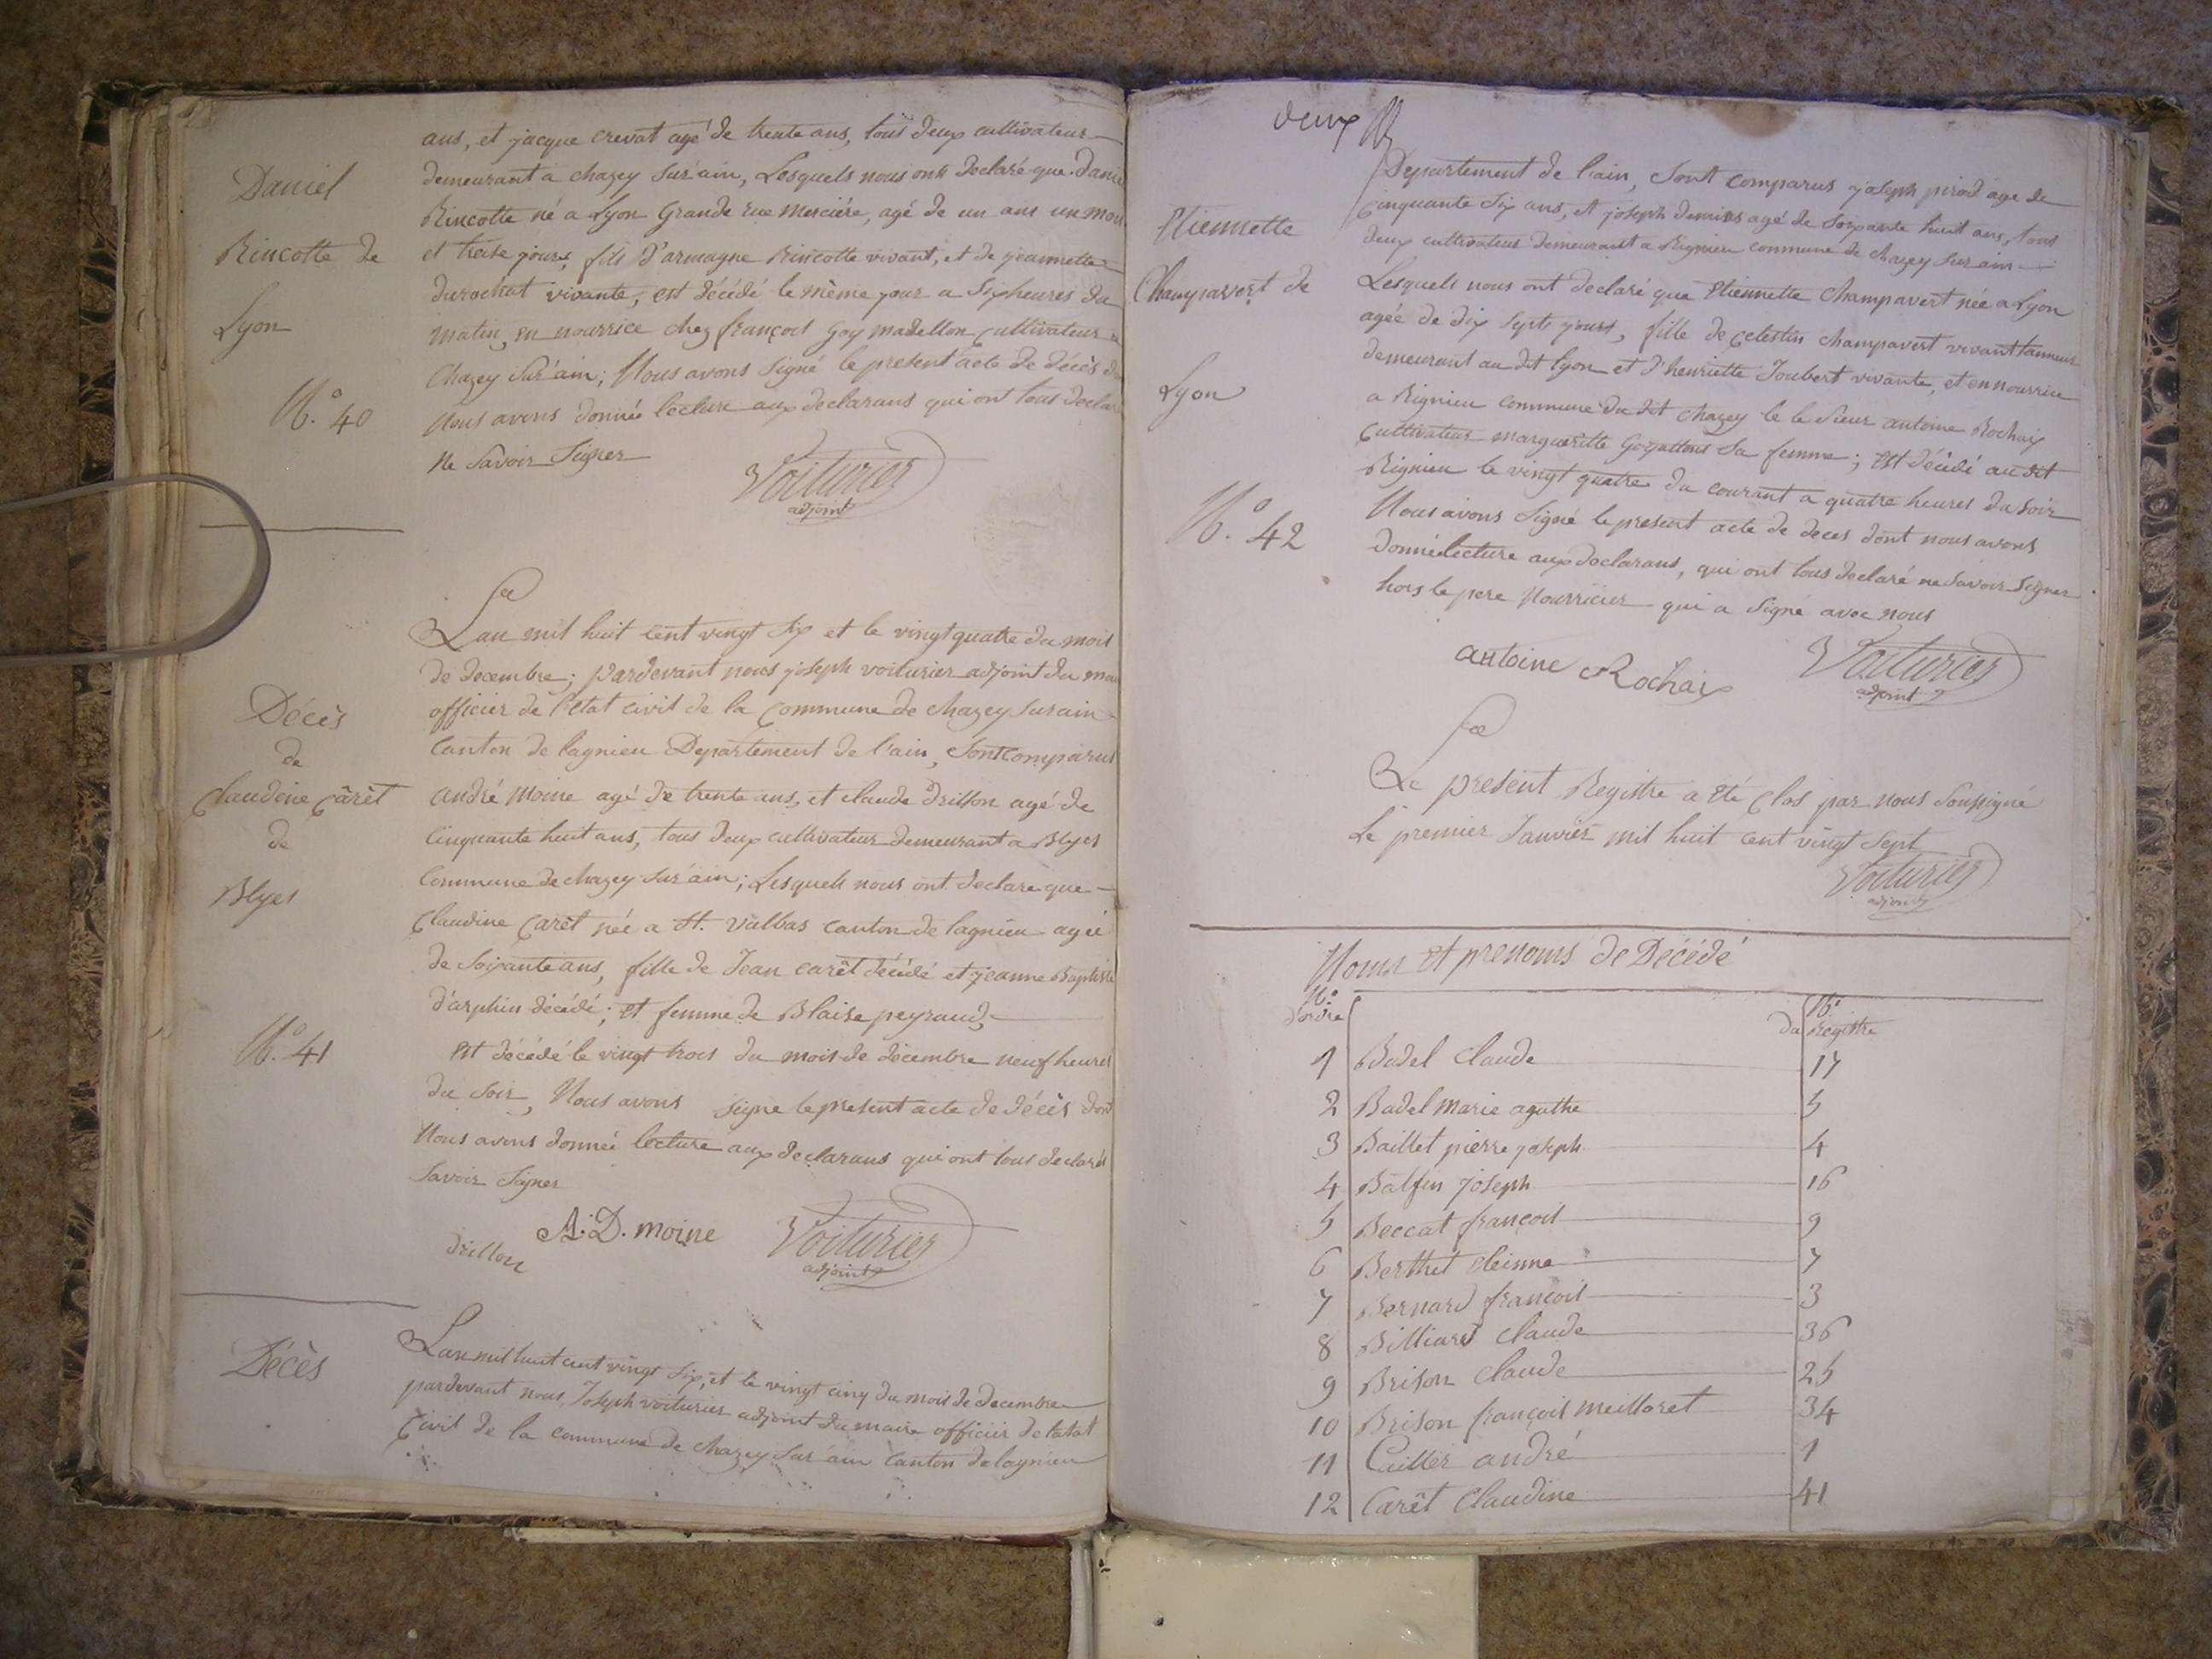 ans, et jacque crevat agé de trente ans, tous deux cultivateur
Daniel
demeurant a chazey sur ain, Lesquels nous ont declaré que Danie
Rincotte né a Lyon Grande rue Merciére, agé de un ans un mois
Rincotte de
et treise jours, fils d'armagne Rincotte vivant, et de jeannette
durochat vivante, est décédé le même jour a six heures du
Lyon
matin, en nourrice chez françois Goy madellon cultivateur a
Chazey sur ain; Nous avons signé le present acte de décès d
N.o 40
Nous avons donnée lecture aux declarans qui ont tous declaré
Ne savoir signer
Voiturier
adjoint
Lan mil huit cent vingt six et le vingt quatre du mois
de decembre; pardevant nous joseph voiturier adjoint du mai
officier de l'etat civil de la Commune de chazey sur ain
Décès
de
canton de lagnieu Departement de l'ain, sont comparus
Claudine Carêt
andré Moine agé de trente ans, et claude drillon agé de
de
cinquante huit ans, tous deux cultivateur demeurant a Blyes
Blyes
Commune de chazey sur ain; Lesquels nous ont declaré que
Claudine Carêt née a St. vulbas canton de lagnieu agée
de soixante ans, fille de Jean carêt décédé et jeanne Baptiste
d'arphin décédé; et femme de Blaise peyraud,
N.o 41
est décédé le vingt trois du mois de décembre neuf heures
du soir, Nous avons signe le present acte de décès dont
Nous avons donnée lecture aux declarans qui ont tous declarés
savoir signer
drillon
A.D. moine
Voiturier
adjoint
Décès
Lan mil huit cent vingt six, et le vingt cinq du mois de decembre
pardevant nous, Joseph voiturier adjoint du maire officier de latat
Civil de la commune de chazey sur ain canton de lagnieu
deux
Departement de l'ain, sont comparus joseph pirod age de
cinquante six ans, et joseph agé de soixante huit ans, tous
Etiennette
deux cultivateur demeurant a Rignieu commune de chazey sur ain
Champavert de
Lesquels nous ont declaré que Etiennette Champavert née a Lyon
agée de dix septs jours, fille de Celestin champavert vivant tanneur
demeurant au dit lyon et d'henriette Joubert vivante, et en nourrice
Lyon
a Rignieu commune du dit chazey le le sieur antoine Rochaix
Cultivateur margueritte sa femme; est décédé au dit
Rignieu le vingt quatre du courant a quatre heures du soir
N.o 42
Nous avons signé le present acte de deces dont nous avons
donnée lecture aux declarans, qui ont tous declaré ne savoir signer
hors le pere Nourricier qui a signé avec nous
antoine Rochaix
Voiturier
adjoint
Le present Registre a eté Clos par nous soussigné
Le premier Janvier mil huit cent vingt sept
Voiturier
adjoint
Noms et prenoms de Décédé
N.o
d'ordre
N.o
du Registre
1 Badel Claude 17
2 Badel Marie agathe 5
3 Baillet pierre joseph 4
4 Joseph 16
5 Beccat françois 9
6 Berthet 7
7 Bernard françois 3
8 Billiard Claude 36
9 Brison Claude 25
10 Brison françois meilloret 34
11 Caillet andré 1
12 Carêt Claudine 41